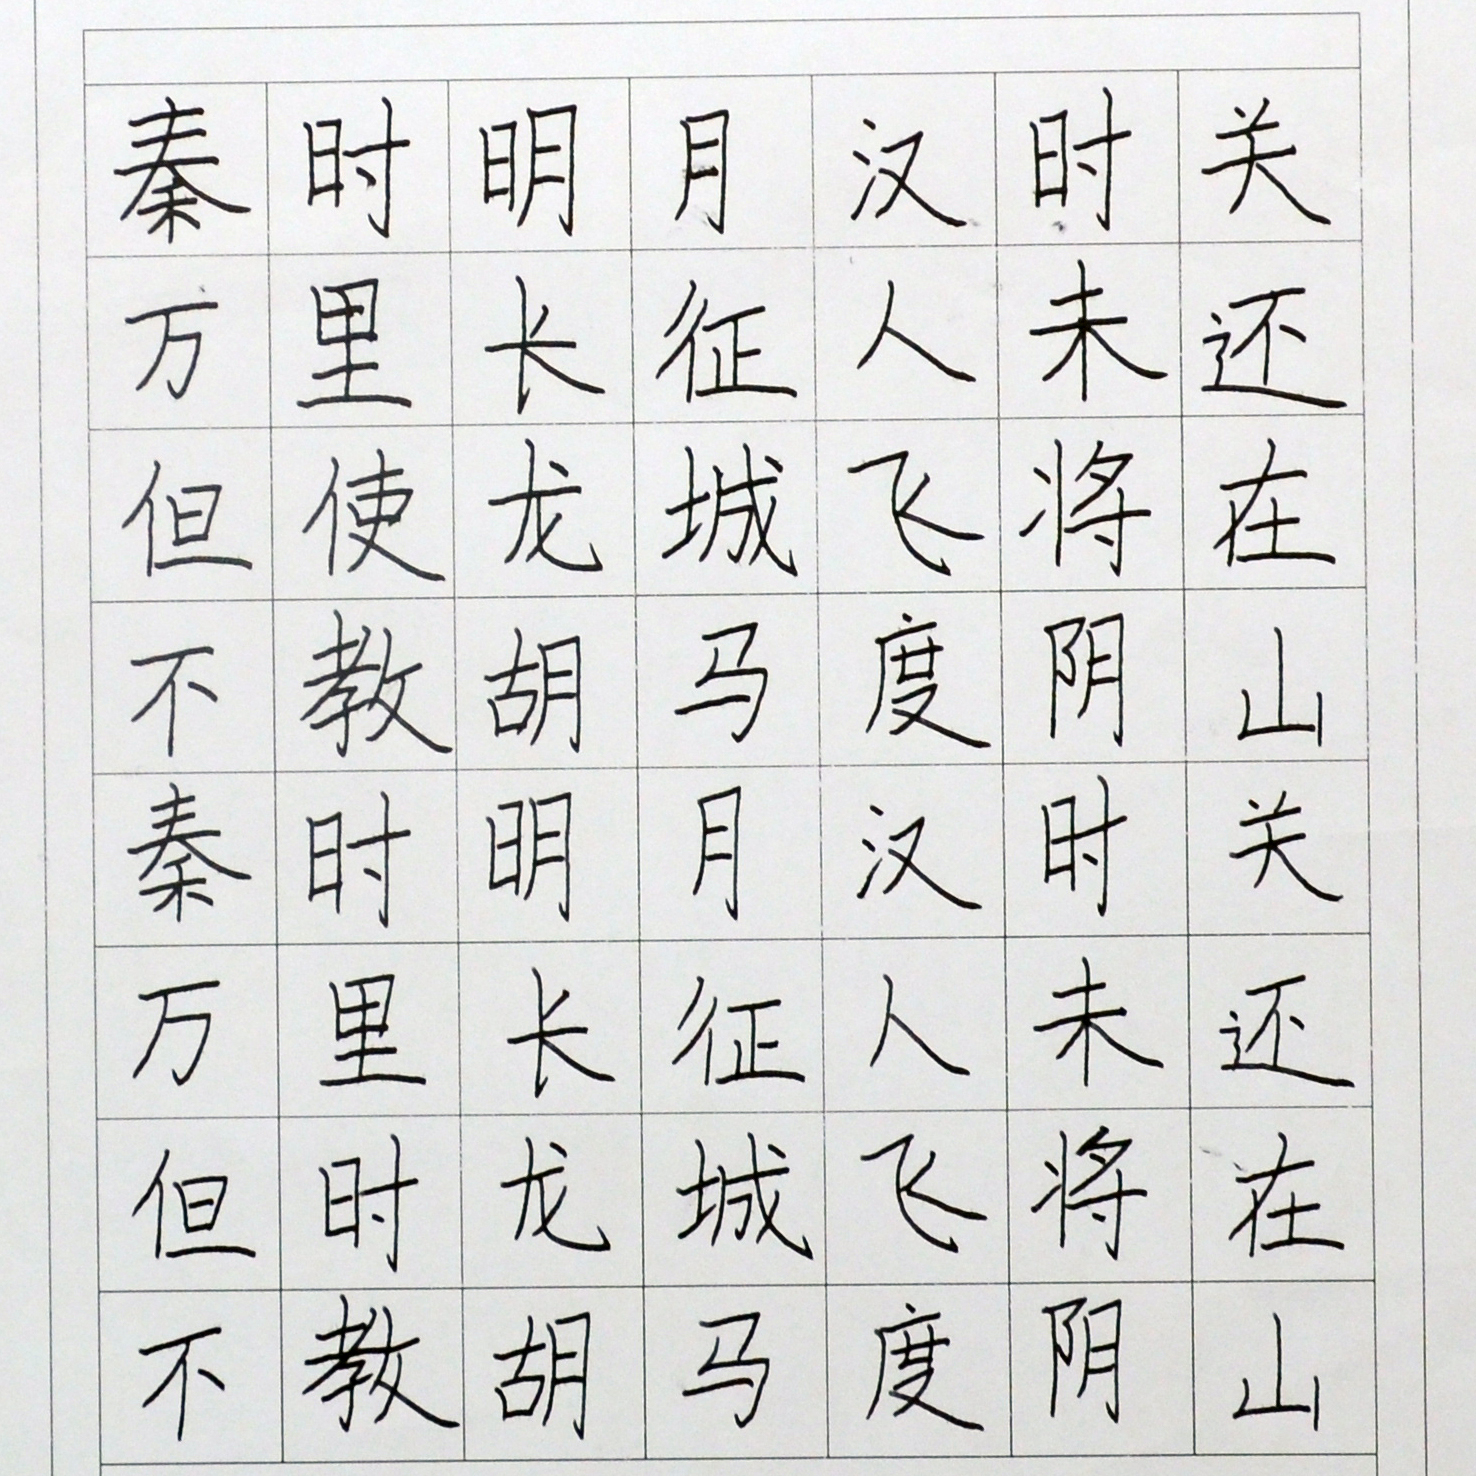 秦时明月汉时关
万里长征人未还
但使龙城飞将在
不教胡马度阴山
秦时明月汉时关
万里长征人未还
但时龙城飞将在
不教胡马度阴山